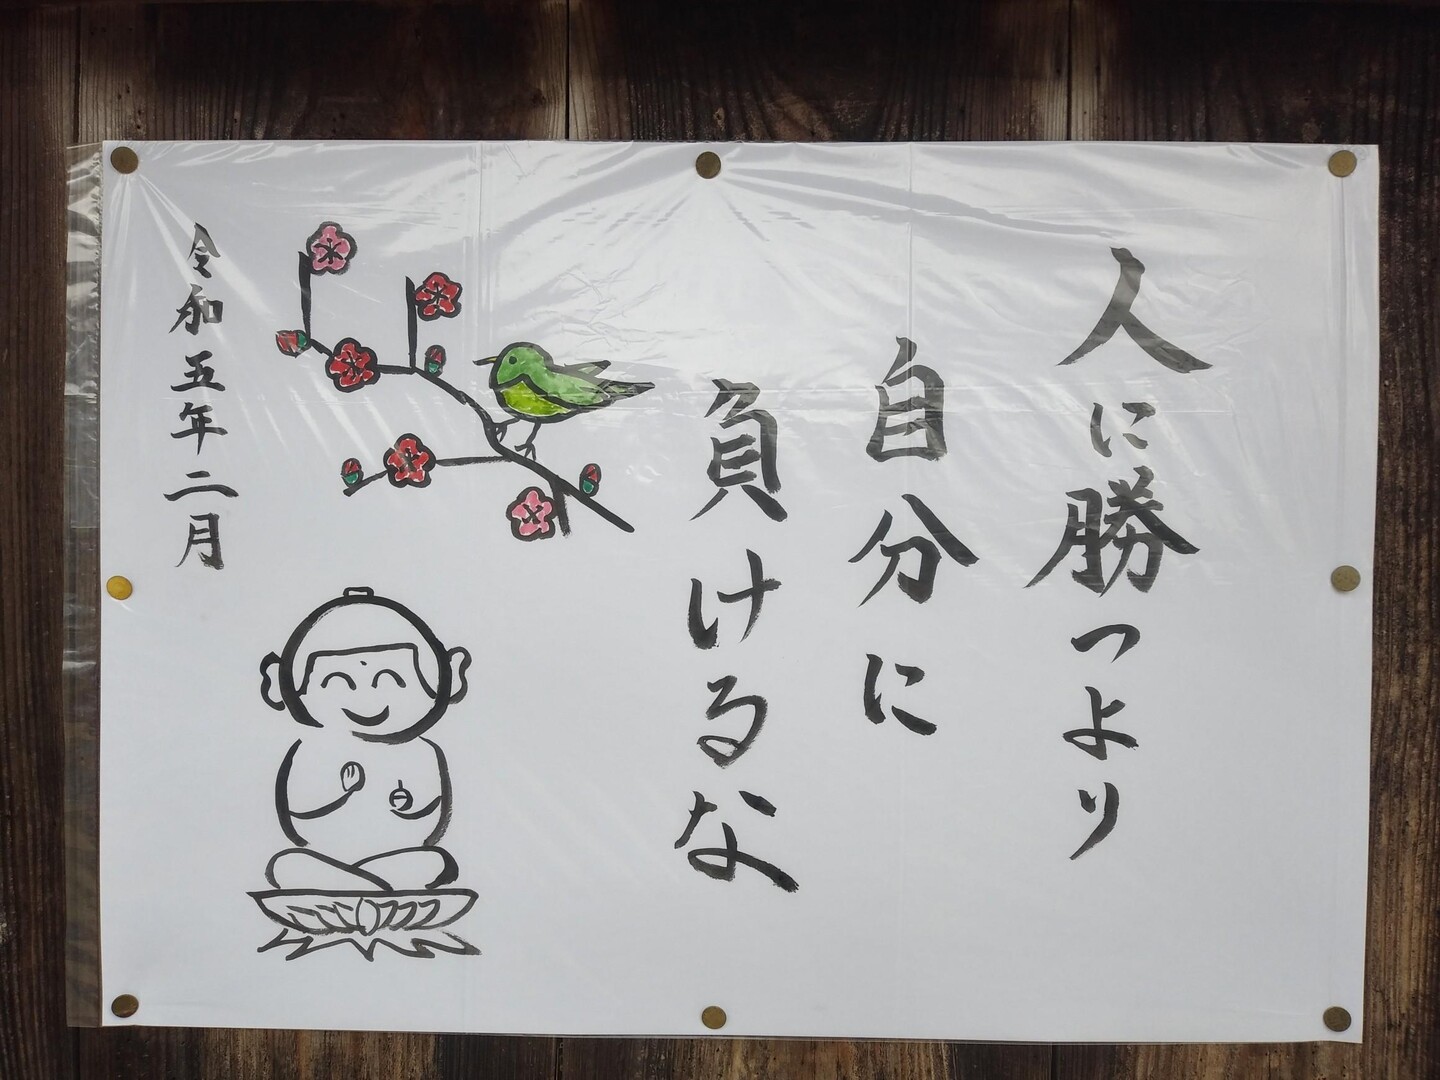 人に勝つより
自分に
負けるな
令和五年二月